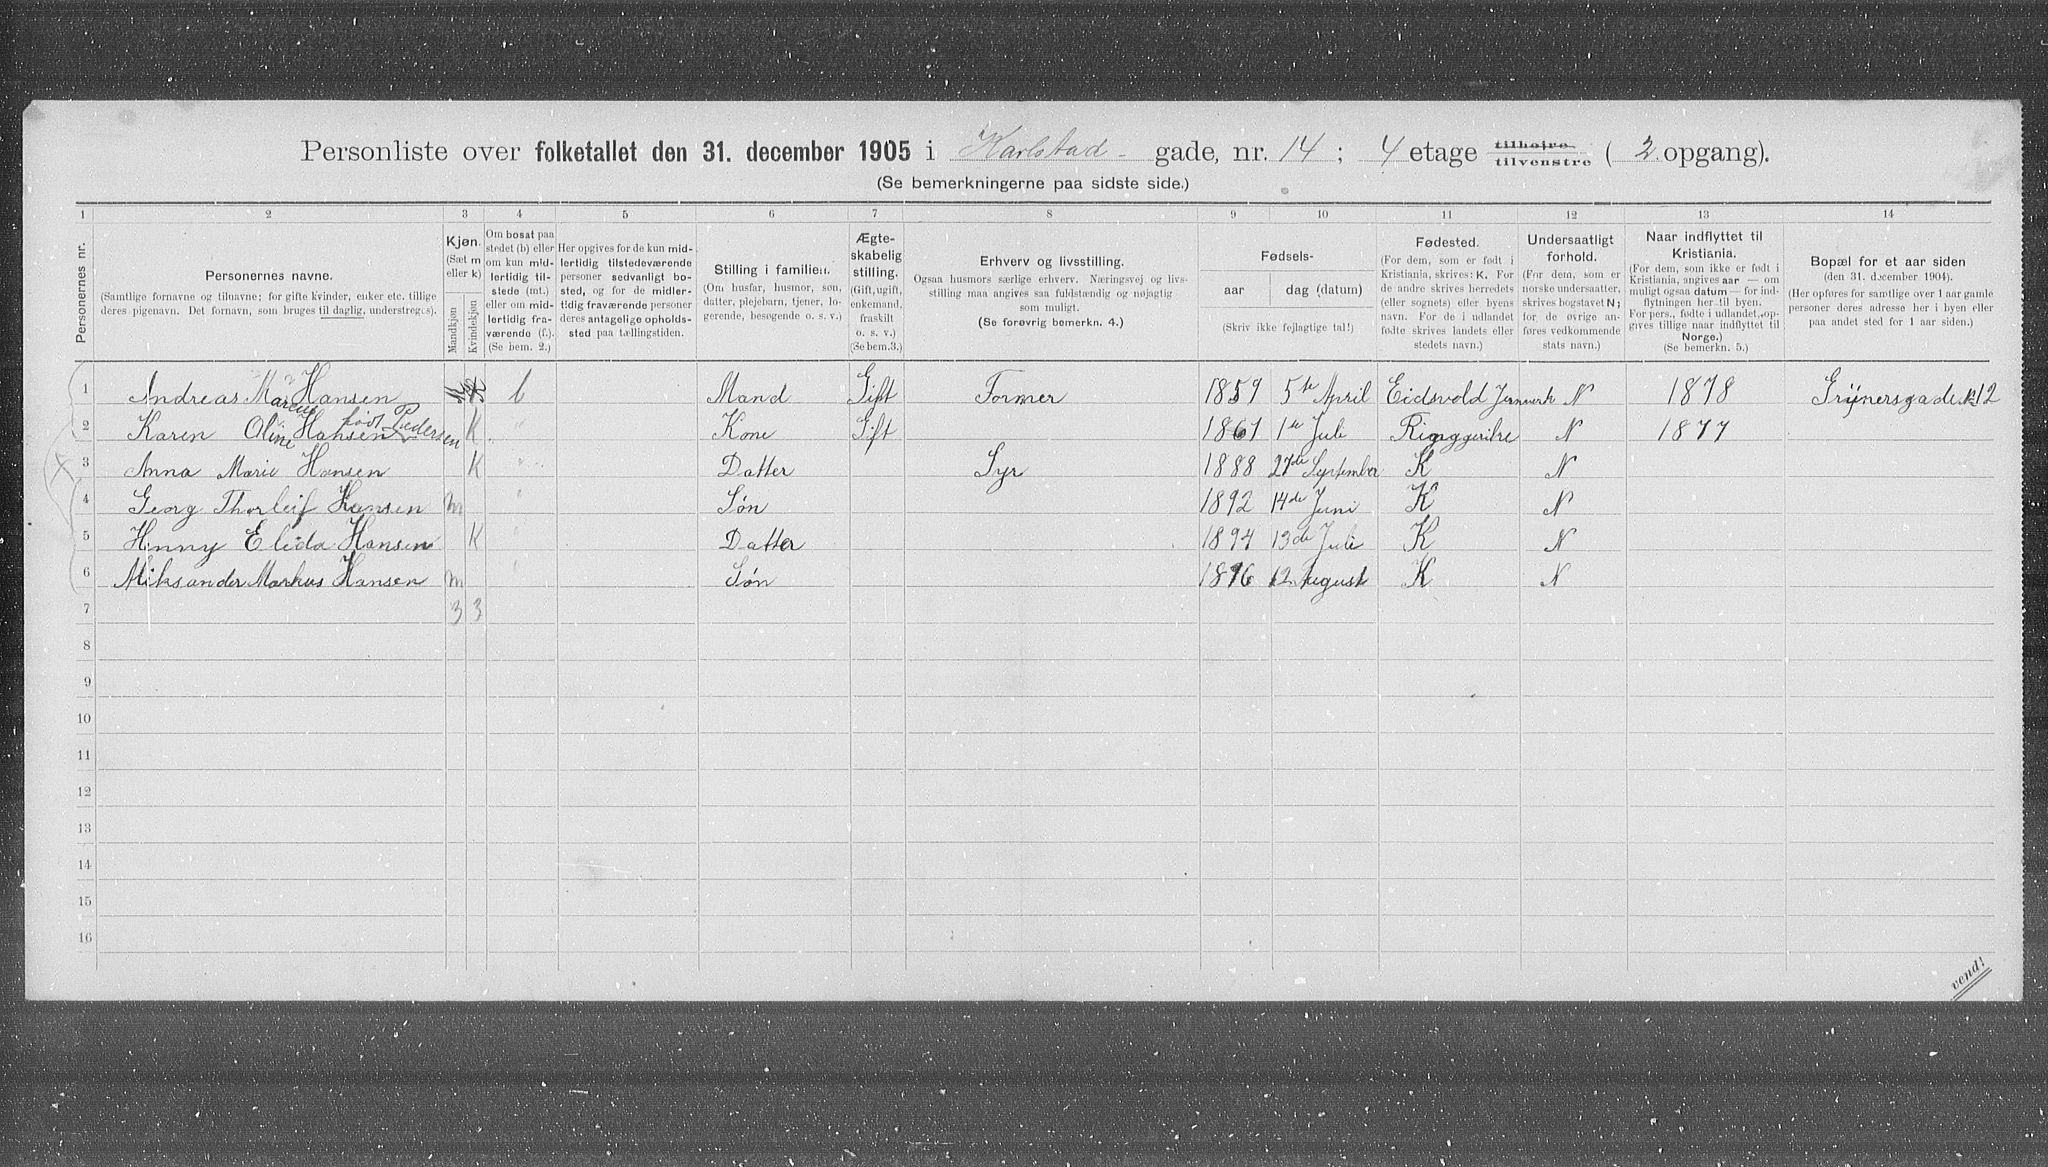 Personliste over folketallet den 31. december 1905 i Karlstad- gade, nr. 14; 4 etage tilhøire tilvenstre (2 opgang).
(Se bemerkningerne paa sidste side.)
1 2 3 4 5 6 7 8 9 10 11 12 13 14
Personernes nr.
Personernes navne.
(Samtlige fornavne og tilnavne; for gifte kvinder, enker etc. tillige
deres pigenavn. Det fornavn, som bruges til daglig, understreges).
Kjøn.
(Sæt m
eller k)
Mandkjøn
Kvindekjøn
Om bosat paa
stedet (b) eller
om kun mid-
lertidig til-
stede (mt.)
eller om mid-
lertidig fra-
værende (f.).
(Se bem. 2.)
Her opgives for de kun mid-
lertidig tilstedeværende
personer sedvanligt bo-
sted, og for de midler-
tidig fraværende personer
deres antagelige opholds-
sted paa tællingstiden.
Stilling i familien.
(Om husfar, husmor, søn,
datter, plejebarn, tjener, lo-
gerende, besøgende o. s. v.)
Ægte-
skabelig
stilling.
(Gift, ugift,
enkemand,
fraskilt
o. s. v.)
(Se bem.3.)
Erhverv og livsstilling.
Ogsaa husmors særlige erhverv. Næringsvej og livs-
stilling maa angives saa fuldstændig og nøjagtig
som muligt.
(Se forøvrig bemerkn. 4.)
Fødsels-
aar dag (datum)
(Skriv ikke fejlagtige tal!)
Fødested.
(For dem, som er født i
Kristiania, skrives: K. For
de andre skrives herredets
(eller sognets) eller byens
navn. For de i udlandet
fødte skrives landets eller
stedets navn.)
Undersaatligt
forhold.
(For dem, som er
norske undersaatter,
skrives bogstavet N;
for de øvrige an-
føres vedkommende
stats navn.)
Naar indflyttet til
Kristiania.
(For dem, som ikke er født i
Kristiania, angives aar — om
muligt ogsaa datum — for ind-
flytningen her til byen.
For pers., fødte i udlandet, op-
gives tillige naar indflyttet til
Norge.)
(Se bemerkn. 5.)
Bopæl for et aar siden
(den 31. december 1904).
(Her opføres for samtlige over 1 aar gamle
personer deres adresse her i byen eller
paa andet sted for 1 aar siden.)
1 Andreas Marcus Hansen b Mand Gift Former 1859 5te April Eidsvold Jernværk N 1878 Grünersgade 12
2 Karen Oline Hansen født Pedersen K " Kone Gift 1861 1te Juli Ringgerike N 1877
3 Anna Marie Hansen K " Datter Syr 1888 27de September K N
4 Georg Thorleif Hansen m " Søn 1892 14de Juni K N
5 Henny Elida Hansen K " Datter 1894 13de Juli K N
6 Aliksander Markus Hansen m " Søn 1896 12 August K N
7 3 3
8
9
10
11
12
13
14
15
16
vend!